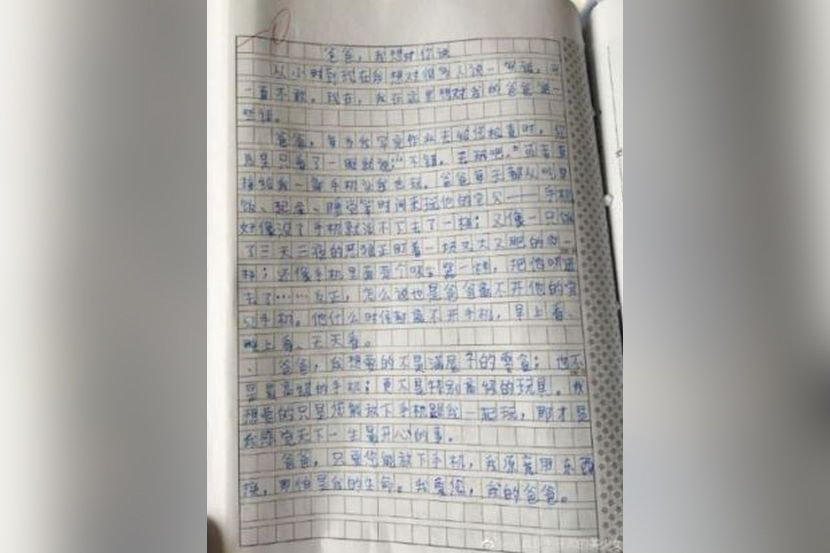 爸爸，我想对你说
从小时到现在我想对很多人说一些话，可
一直不敢。现在，我在这里想对我的爸爸说一
些话。
爸爸，每当我写完作业去给您检查时，您
总是只看了一眼就说：“不错，去玩吧。”还会直
接给我一部手机让我去玩。爸爸每天都从吃
饭、起坐、睡觉等时间去玩他的宝贝——手机
好像没了手机就活不下去了一样；又像一只饿
了三天三夜的恶狼正盯着一块又大又肥的肉一
样；还像手机里面有个吸尘器一样，把他吸进
去了……反正，怎么说也是爸爸离不开他的宝
贝手机。他什么时候都离不开手机，早上看、
晚上看、天天看。
爸爸，我想要的不是满屋子的零食；也不
是最高级的手机；更不是特别高级的玩具。我
想要的只是您能放下手机跟我一起玩，那才是
我感觉天下一生最开心的事。
爸爸，只要您能放下手机，我愿意用东西
换，哪怕是我的生命。我爱您，我的爸爸。